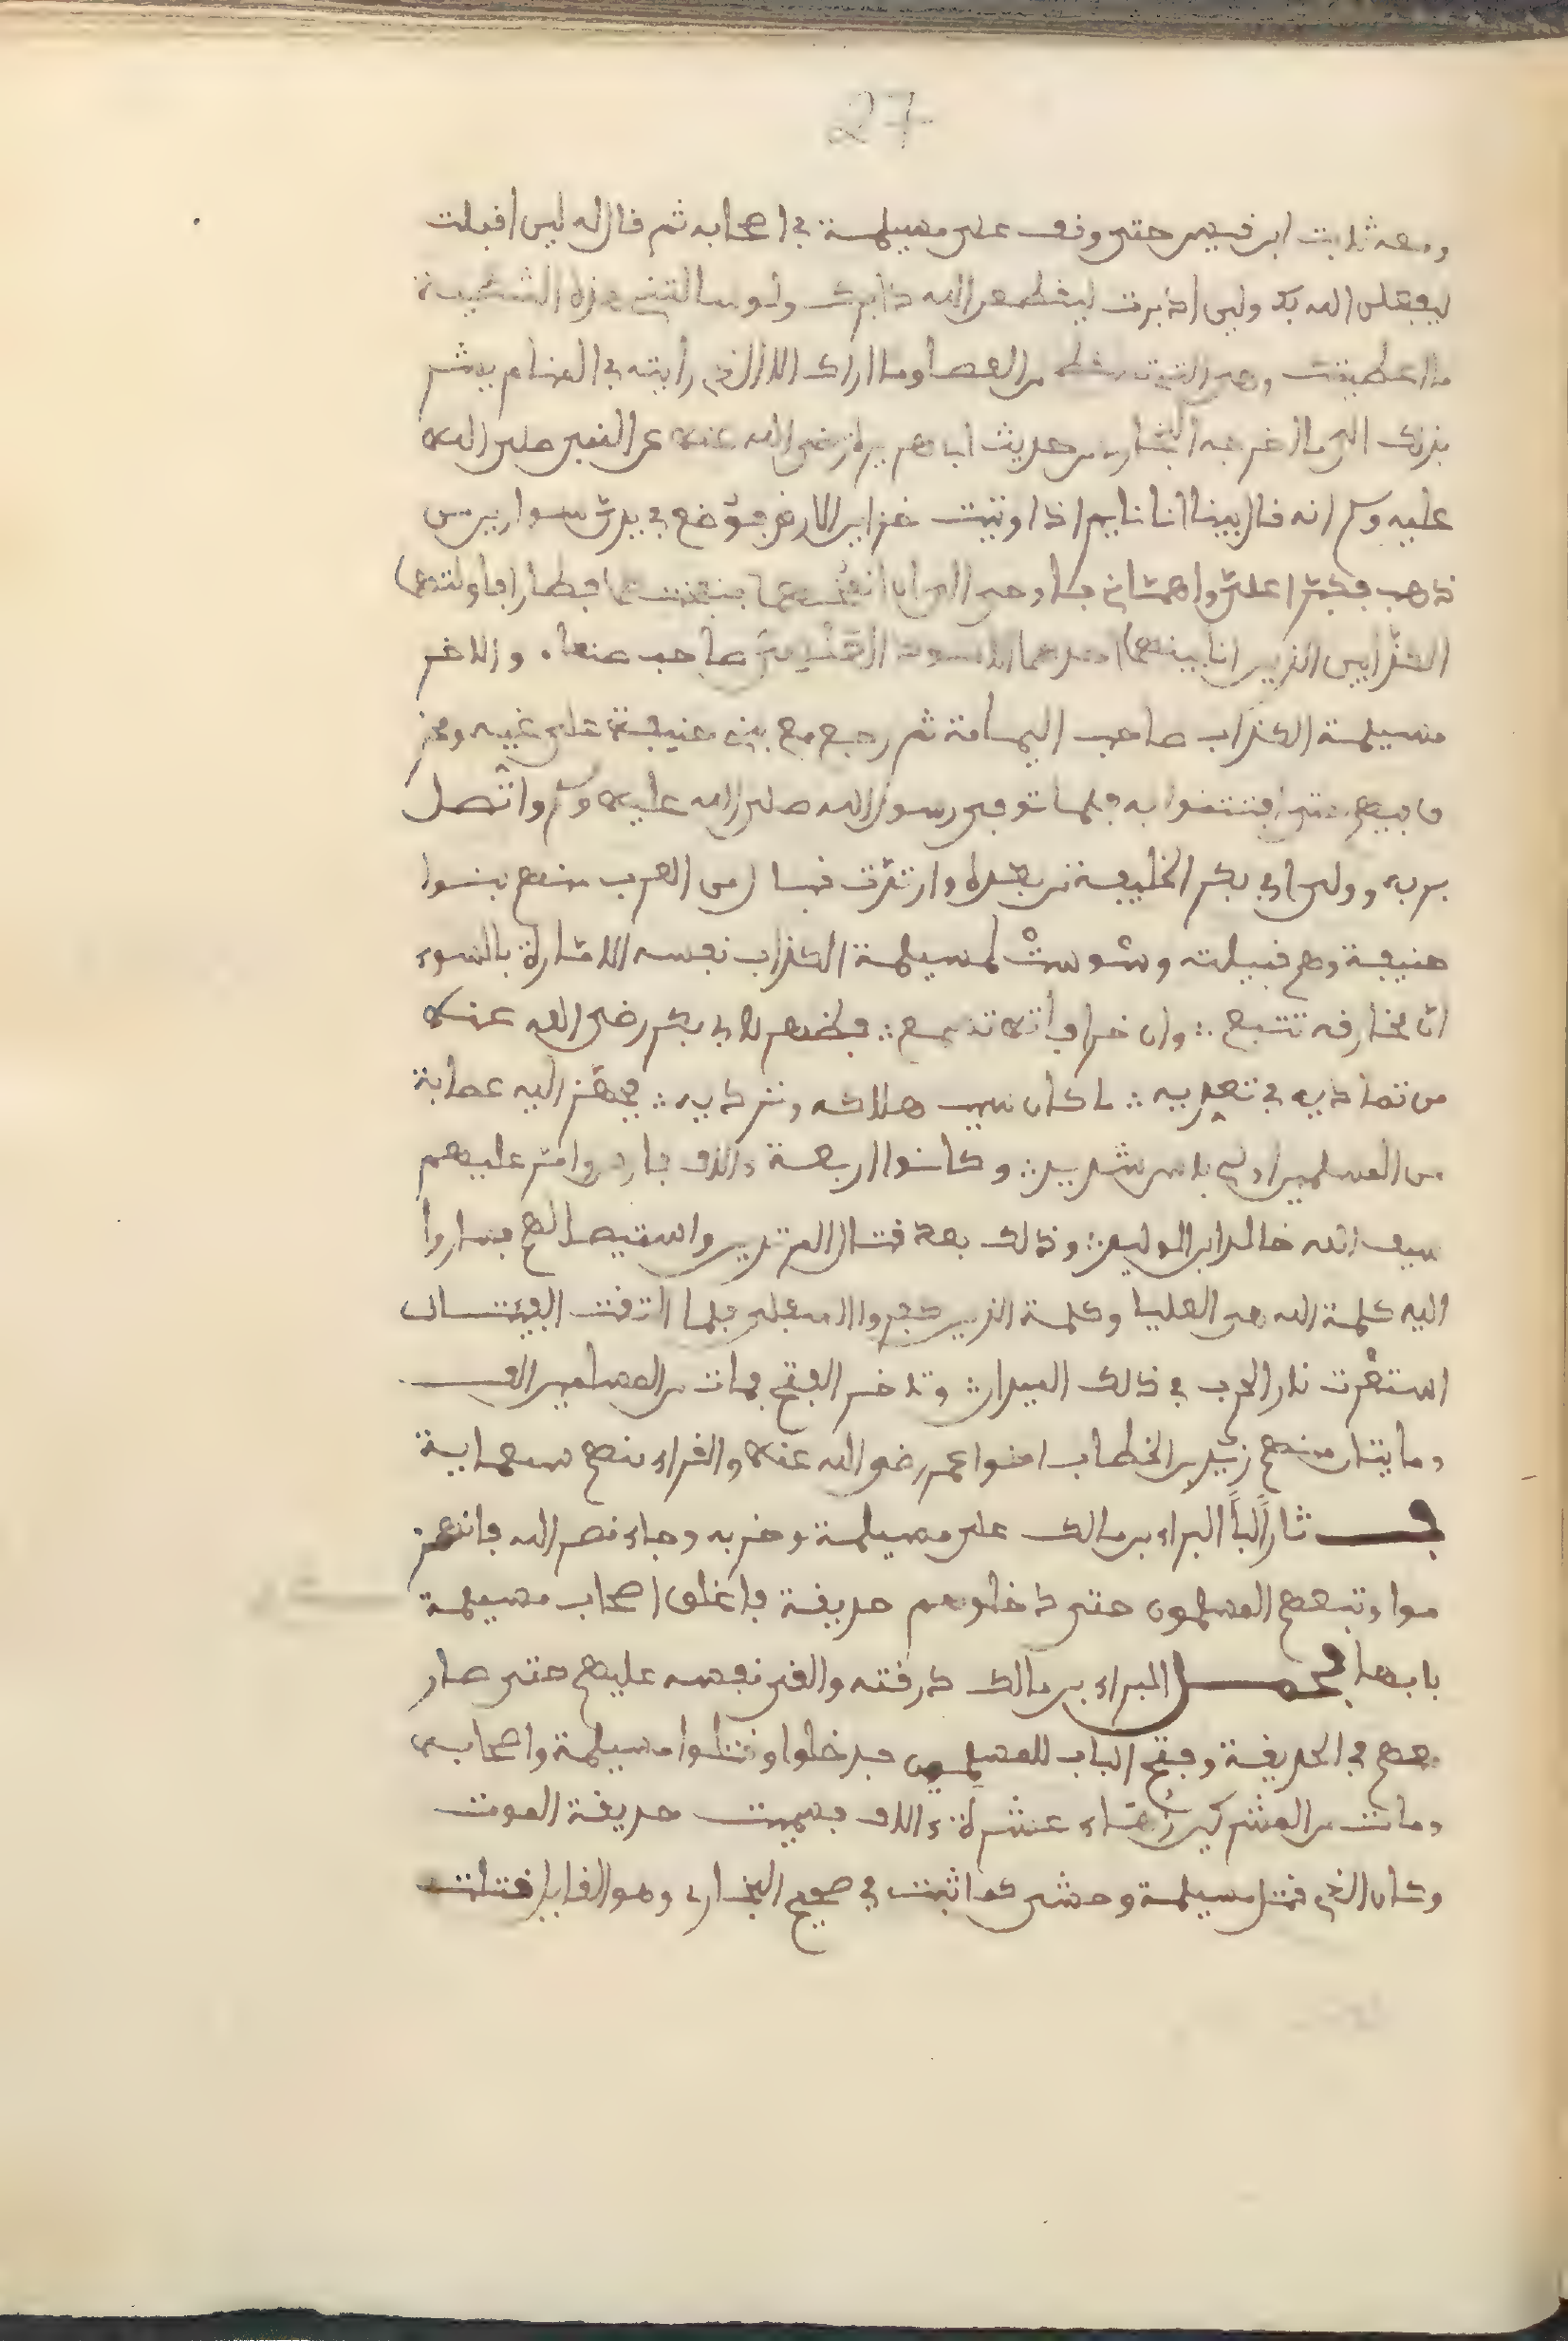 27
ومعه ثابت ابن قيس حتى وقف على مسيلمة في اصحابه ثم قال له لين اقبلت
ليفعلن الله بك ولين ادبرت ليقطعن الله دابرك ولو سالتني هذه الشظية
ما اعطيتك وهي التي من العصا وما اراك الا الذي رايته في المنام يشر
بذلك الى ما اخرجه البخاري من حديث ابا هريرة رضي الله عنه عن النبي صلى الله
عليه وسلم انه قال بينما انا نايم اذا وتيت خزاين الارض فوضع في يدي سوارين من
ذهب فكبرا علي واهماني فاوحي الي ان انفخهما فنفختهما فطارا فاولتهما
الكذابين الذين انا بينهما احدهما الاسود العنسي صاحب صنعاء والاخر
مسيلمة الكذاب صاحب اليمامة ثم رجع مع بني حنيفة على غيه
حتى افتتنوا به فلما توفي رسول الله صلى الله عليه وسلم واتصل
بربه وولي ابي بكر الخليفة من بعده وارتدت قبايل من العرب منهم بنوا
حنيفة وهم قبيلته وسوست لمسيلمة الكذاب نفسه الامارة بالسوء
ان مخارفه تتبع ∴ وان خرافاته تسمع ∴ فظهر لابي بكر رضي الله عنه
من تماديه في تعديه ∴ ما كان سبب هلاكه وترديه ∴ فجهز اليه عصابة
من المسلمين اولي باس شديد ∴ وكانوا اربعة ءالاف فارس وامر عليهم
سيف الله خالد ابن الوليد ∴ وذلك بعد قتال المرتدين واستيصالهم فساروا
اليه كلمة الله هي العليا وكلمة الذين كفروا السفلى فلما التقت الفيتان
استعرت نار الحرب في ذلك الميدان ∴ وتاخر الفتح فمات من المسلمين الف
ومايتان منهم زيد بن الخطاب اخوا عمر رضي الله عنه والقراء منهم سبعماية
فثار البراء بن مالك على مسيلمة وحزبه وجاء نصر الله فانهز
موا وتبعهم المسلمون حتى دخلوهم حديقة فاغلق اصحاب مسيلمة
بابها فحمل البراء بن مالك درقته والقى نفسه عليهم حتى صار
معهم في الحديقة وفتح الباب للمسلمين فدخلوا وقتلوا مسيلمة واصحابه
ومات من المشركين زهاء عشرة ءالاف فسميت حديقة الموت
وكان الذي قتل مسيلمة وحشي كما ثبت في صحيح البخاري وهو القايل قتلت